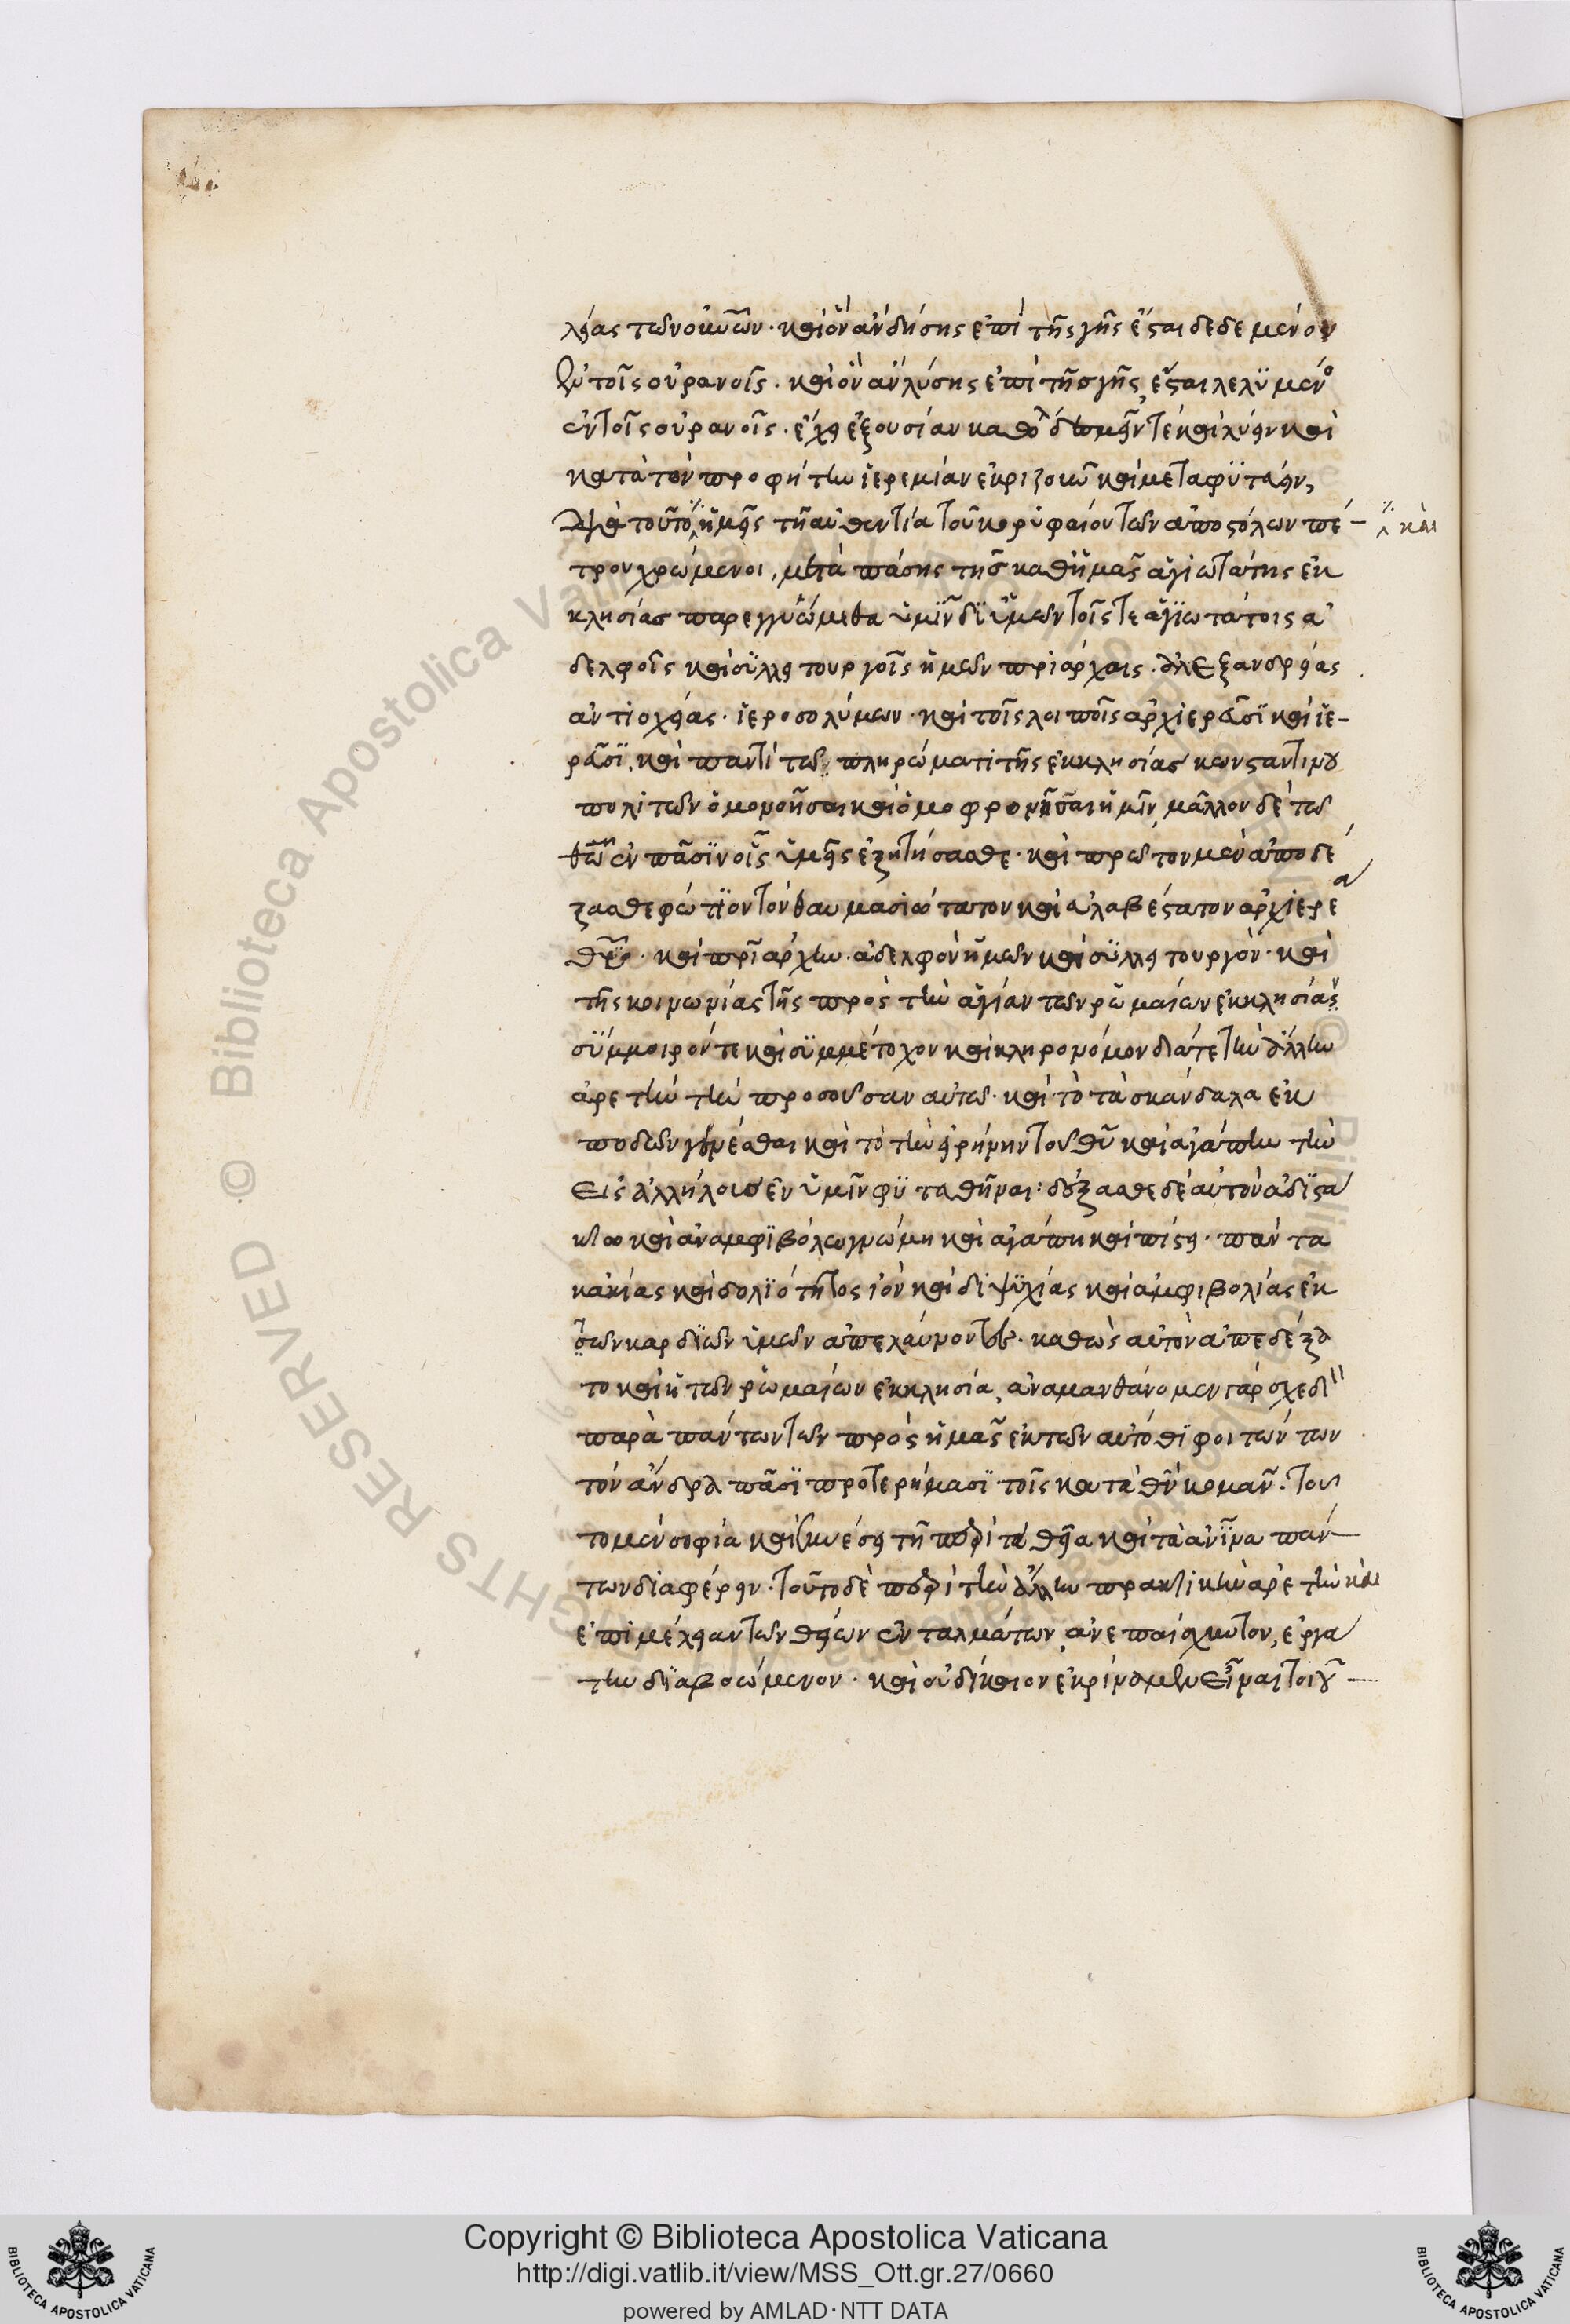 λείας τῶν οὐ(ρα)νῶν· καὶ ὃν ἂν δήσης ἐπὶ τῆς γῆς ἔσται δεδεμένον
ἐν τοῖς οὐρανοῖς· καὶ ὃν ἂν λύσης ἐπὶ τῆς γῆς, ἔσται λελυμένο
ἐν τοῖς οὐρανοῖς· ἔχει ἐξουσίαν καθόλου δεσμεῖν τὲ καὶ λύειν καὶ
κατὰ τὸν προφήτην ἱερεμίαν ἐκριζοῦν καὶ μεταφυτεύειν,
διὰ τοῦτο ἡμεῖς τῆ αὐθεντία τοῦ κορυφαίου τῶν ἀποστόλων πέ-
καὶ
τρου χρώμενοι, μετὰ πάσης τῆς καθ' ἡμᾶς ἁγιωτάτης ἐκ
κλησίας παρεγγυώμεθα ὑμῖν δι' ὑμῶν τοῖς τε ἁγιωτάτοις ἀ
δελφοῖς καὶ συλλειτουργοῖς ἡμῶν πριάρχαις· ἀλεξανδρείας
ἀντιοχείας· ἱεροσολύμων· καὶ τοῖς λοιποῖς ἀρχιερεῦσι καὶ ἱε-
ρεῦσι, καὶ παντὶ τῶ πληρώματι τῆς ἐκκλησίας κωνσταντινου
πολιτῶν ὁμονοῆσαι καὶ ὁμοφρονῆσαι ἡμῖν, μᾶλλον δὲ τῶ
θῶ ἐν πᾶσιν οἷς ὑμεῖς ἐζητήσασθε· καὶ πρῶτον μὲν ἀποδέ
ξασθε φώτιον τὸν θαυμασιώτατον καὶ εὐλαβέστατον ἀρχιερέα
θεοῦ· καὶ πριάρχην· ἀδελφὸν ἡμῶν καὶ συλλειτουργὸν· καὶ
τῆς κοινωνίας τῆς πρὸς τὴν ἁγίαν τῶν ῥωμαίων ἐκκλησίας
σύμμοιρόν τε καὶ συμμέτοχον καὶ κληρονόμον διά τε τὴν ἄλλην
ἀρετὴν τὴν προσοῦσαν αὐτῶ· καὶ τὸ τὰ σκάνδαλα ἐκ
ποδῶν γενέσθαι καὶ τὸ τὴν εἰρήνην τοῦ θῦ καὶ ἀγάπην τὴν
εἰς ἀλλήλοις ἐν ὑμῖν φυτευθῆναι: δέξασθε δὲ αὐτὸν ἀδιστά
κτω καὶ ἀναμφιβόλω γνώμη καὶ ἀγάπη καὶ πίστει· πάντα
κακίας καὶ δολιότητος ἰὸν καὶ διψυχίας καὶ ἀμφιβολίας ἐκ
τῶν καρδιῶν ὑμῶν ἀπελαύνοντες· καθὼς αὐτὸν ἀπεδέξα
το καὶ ἡ τῶν ῥωμαίων ἐκκλησία, ἀναμανθάνομεν γὰρ σχεδὸν
παρὰ πάντων τῶν πρὸς ἡμᾶς ἐκ τῶν αὐτόθι φοιτώντων
τὸν ἄνδρα πᾶσι προτερήμασι τοῖς κατὰ θν κομᾶν· τοῦ
το μὲν σοφία καὶ συνέσει τῆ περὶ τὰ θεῖα καὶ τὰ ἀνινα πάν
των διαφέρειν· τοῦτο δὲ περὶ τὴν ἄλλην πρακτικὴν ἀρετὴν καὶ
ἐπιμέλειαν τῶν θείων ἐνταλμάτων, ἀνεπαίσχυντον, ἐργά
την διαβοώμενον· καὶ οὐ δίκαιον ἐκρίναμεν εἶναι τοιοῦ
Copyright © Biblioteca Apostolica Vaticana
http://digi.vatlib.it/view/MSS_Ott.gr.27/0660
powered by AMLAD·NTT DATA